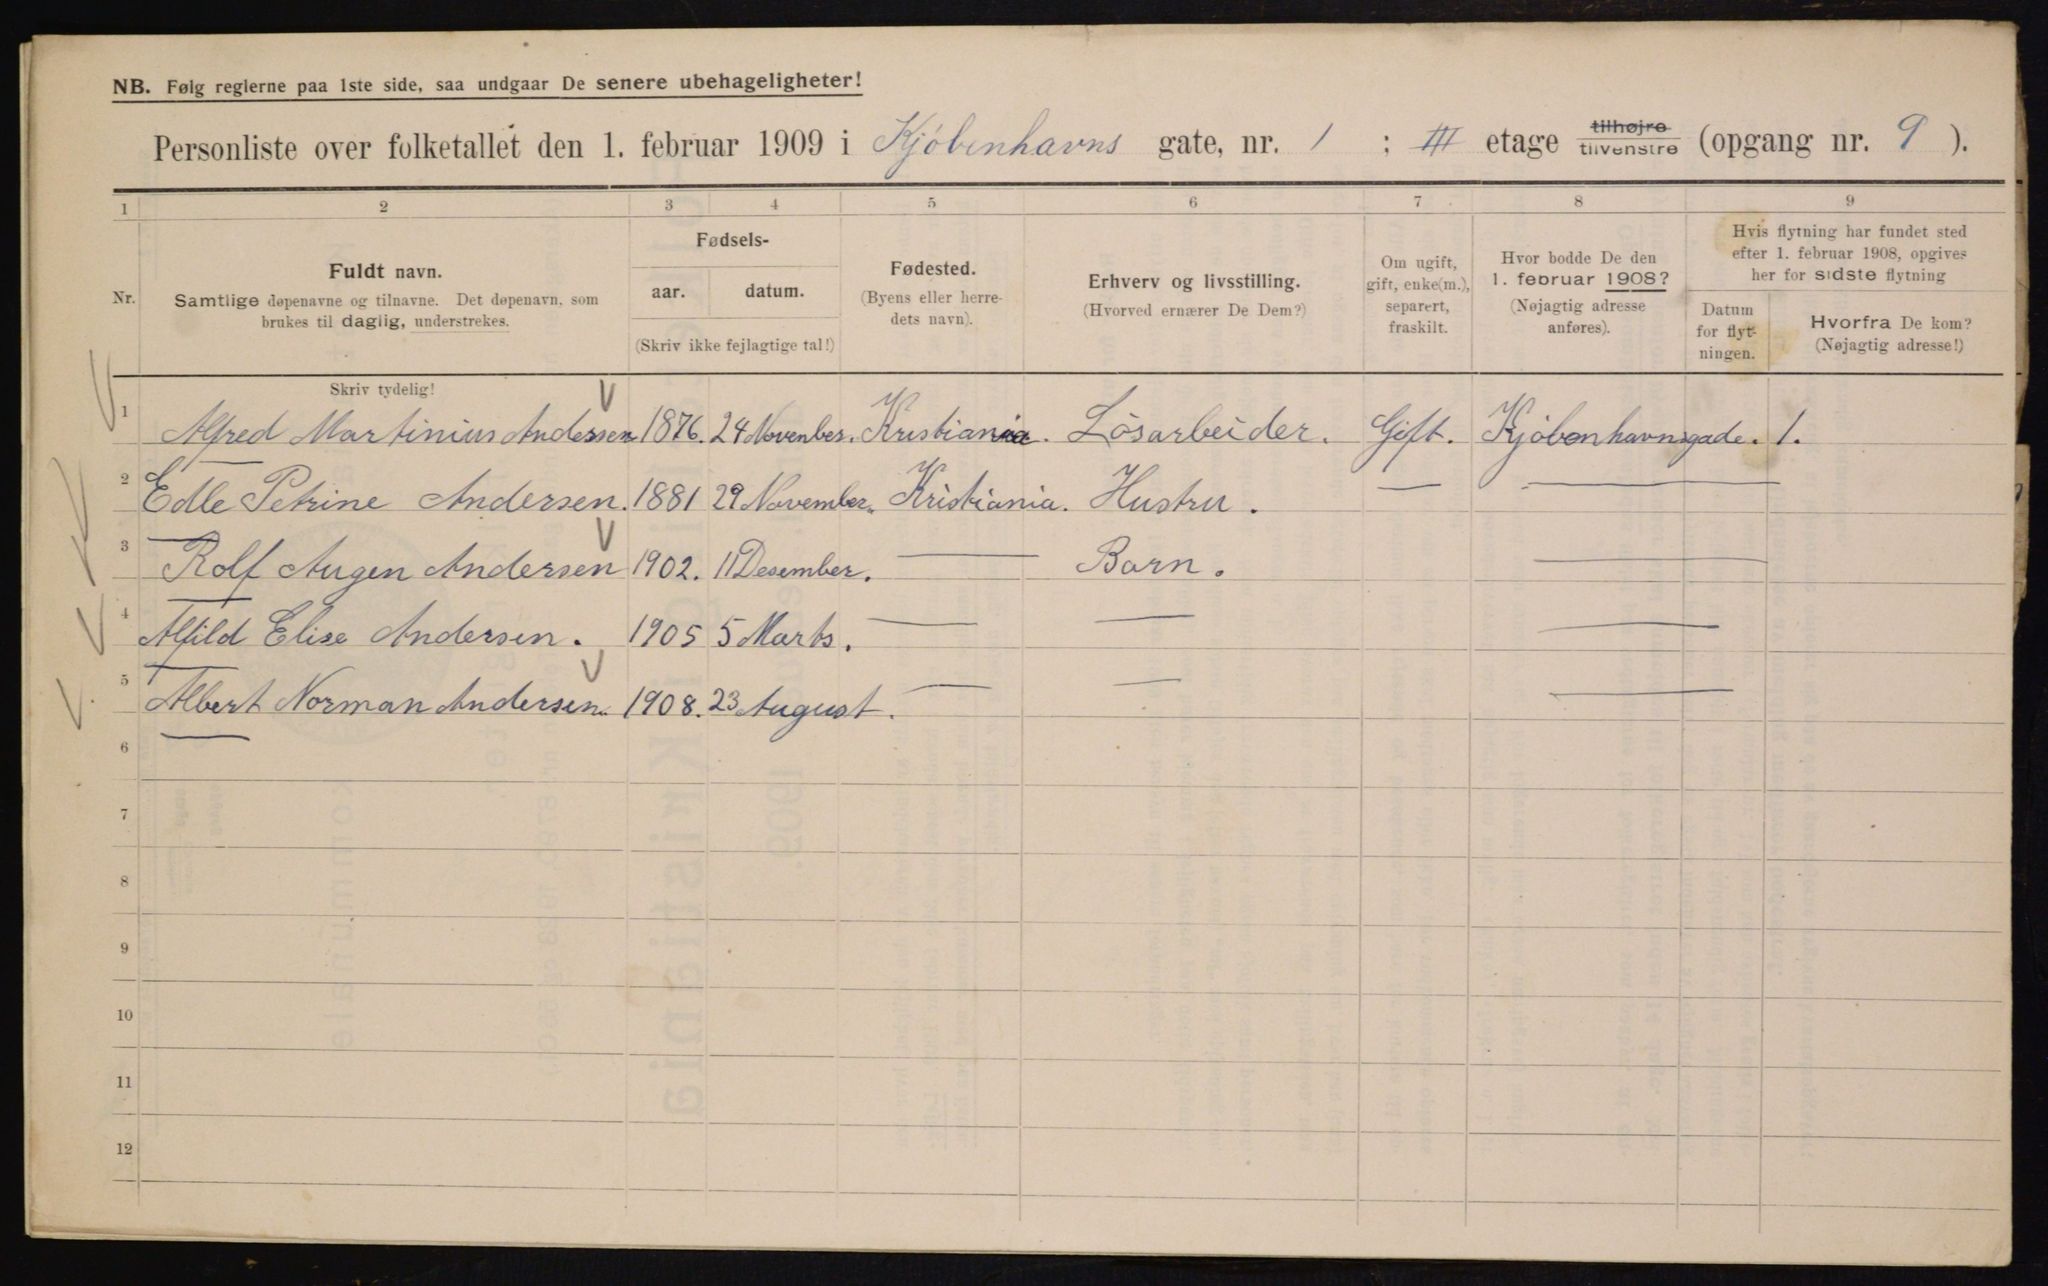 NB. Følg reglerne paa 1ste side, saa undgaar De senere ubehageligheter!
Personliste over folketallet den 1. februar 1909 i Kjøbenhavns gate, nr. 1 ; III etage tilhøjre tilvenstre (opgang nr. 9 ).
1 2 3 4 5 6 7 8 9
Nr.
Fuldt navn.
Samtlige døpenavne og tilnavne. Det døpenavn, som
brukes til daglig, understrekes.
Fødsels-
aar. datum.
(Skriv ikke fejlagtige tal!)
Fødested.
(Byens eller herre-
dets navn).
Erhverv og livsstilling.
(Hvorved ernærer De Dem?)
Om ugift,
gift, enke(m.),
separert,
fraskilt.
Hvor bodde De den
1. februar 1908?
(Nøjagtig adresse
anføres).
Hvis flytning har fundet sted
efter 1. februar 1908, opgives
her for sidste flytning
Datum
for flyt-
ningen.
Hvorfra De kom?
(Nøjagtig adresse!)
Skriv tydelig!
1 Alfred Martinius Andersen 1876. 24 Novenber. Kristiania. Lösarbeider. Gift. Kjöbenhavnsgade. 1.
2 Edle Petrine Andersen. 1881 29 November. Kristiania. Hustru. — —
3 Rolf Augen Andersen 1902. 11 Desember. — Barn. —
4 Alfild Elise Andersen. 1905 5 Marts. — — —
5 Albert Norman Andersen. 1908. 23 August. — — —
6
7
8
9
10
11
12